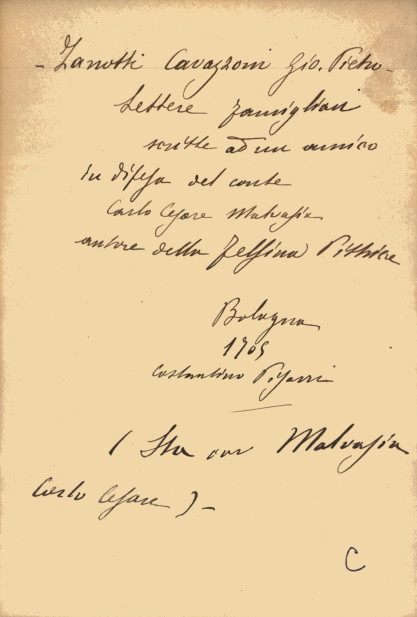 - Zanotti Cavazzoni Gio. Pietro -
Lettere famigliari
scritte ad un amico
in difesa del conte
Carlo Cesare Malvasia
autore della Felsina Pittrice
Bologna
1705
Costantino Pisarri
( Sta con Malvasia
Carlo Cesare ) -
C